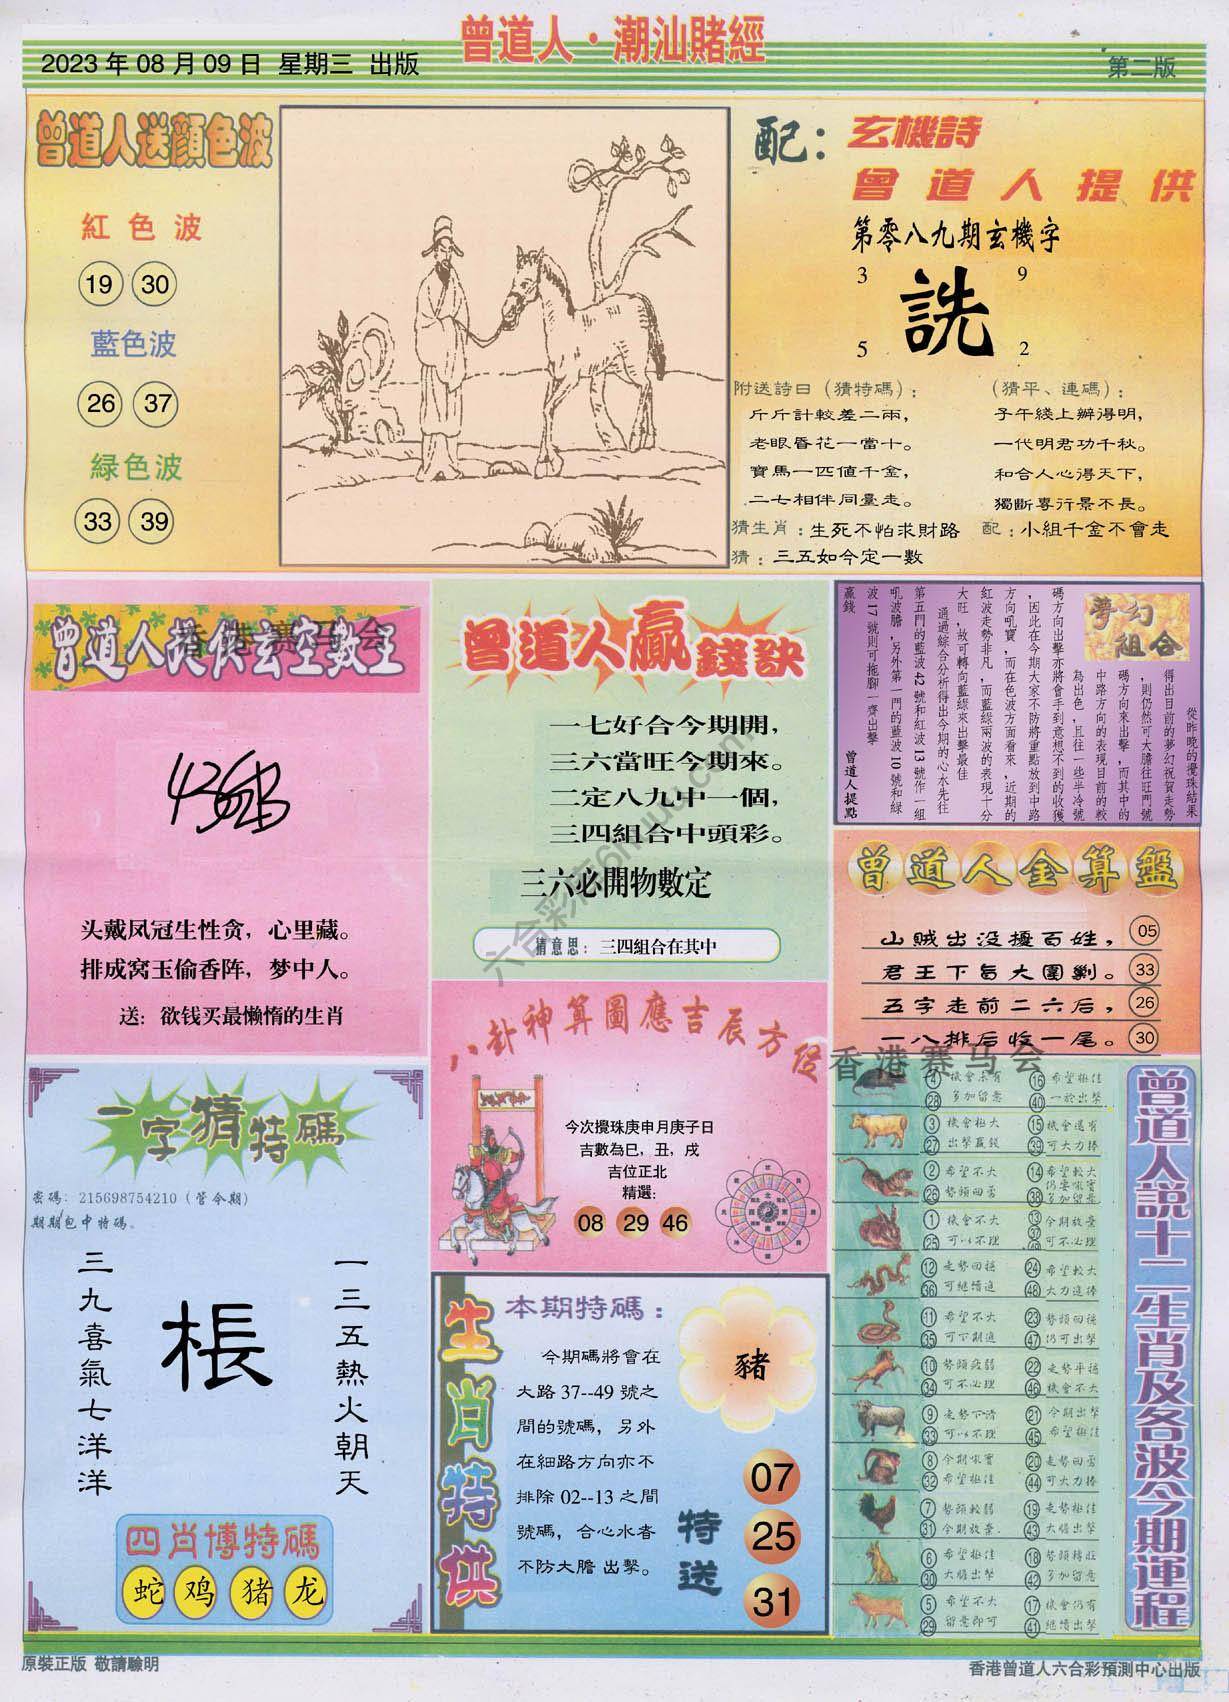 曾道人·潮汕賭經
2023 年 08 月 09 日 星期三 出版
第二版
曾道人送顏色波
紅色波
19 30
藍色波
26 37
緑色波
33 39
配：玄機詩
曾道人提供
第零八九期玄機字
3 9
詵
5 2
附送詩曰（猜特碼）：
斤斤計較差二兩，
老眼昏花一當十。
寶馬一匹值千金，
二七相伴同臺走。
猜生肖：生死不怕求財路
猜：三五如今定一數
（猜平、連碼）：
子午綫上辦得明，
一代明君功千秋。
和合人心得天下，
獨斷專行景不長。
配：小組千金不會走
曾道人提供玄空數王
香港赛马会
头戴凤冠生性贪，心里藏。
排成窝玉偷香阵，梦中人。
送：欲钱买最懒惰的生肖
曾道人贏錢訣
一七好合今期開，
三六當旺今期來。
二定八九中一個，
三四組合中頭彩。
三六必開物數定
猜意思：三四組合在其中
夢幻組合
從昨晚的攪珠結果
得出目前的夢幻祝賀走勢
，則仍然可大膽往旺門號
碼方向來出擊，而其中的
中路方向的表現目前的較
為出色，且往一些半冷號
碼方向出擊亦將會手到意想不到的收獲
，因此在今期大家不防將重點放到中路
方向吼寶，而在色波方面看來，近期的
紅波走勢非凡，而藍綠兩波的表現十分
大旺，故可轉向藍綠來出擊最佳
通過綜合分析得出今期的心水先往
第五門的藍波 42 號和紅波 13 號作一組
吼波膽，另外第一門的藍波 10 號和綠
波 17 號則可拖腳一齊出擊
贏錢
曾道人提點
曾道人金算盤
山賊出没擾百姓， 05
君王下旨大圍剿。 33
五字走前二六后， 26
一八排后收一尾。 30
香港赛马会
八卦神算圖應吉辰方位
今次攪珠庚申月庚子日
吉數為巳，丑，戌
吉位正北
精選：
08 29 46
一字猜特碼
密碼：215698754210（管令期）
期期包中特碼。
一三五熱火朝天
棖
三九喜氣七洋洋
四肖博特碼
蛇 鸡 猪 龙
生肖特供
本期特碼：
今期碼將會在
大路 37--49 號之
間的號碼，另外
在細路方向亦不
排除 02--13 之間
號碼，合心水者
不防大膽 出擊。
豬
特送
07
25
31
曾道人説十二生肖及各波今期運程
4 28 機會未有 多加留意 16 40 希望極佳 一於出擊
3 27 機會極大 出擊贏錢 15 39 機會還有 可大力捧
2 26 希望不大 勢頭回勇 14 38 希望較大 仍要吼寶 多加留意
1 25 機會不大 可以不理 13 37 49 今期放棄 可不必理
12 36 走勢回穩 可繼續追 24 48 希望較大 大力追捧
11 35 希望不大 可下期追 23 47 勢頭回穩 仍可出擊
10 34 勢頭疲弱 可不必理 22 46 走勢平穩 機會不大
9 33 走勢下滑 可以不理 21 45 今期出擊 希望極佳
8 32 今期吼寶 希望極佳 20 44 走勢回勇 可大力捧
7 31 勢頭較弱 今期放棄 19 43 走勢極佳 大膽出擊
6 30 希望極佳 大膽出擊 18 42 勢頭轉旺 多加留意
5 29 希望不大 留意即可 17 41 機會仍有 繼續出擊
原裝正版 敬請驗明
香港曾道人六合彩預測中心出版